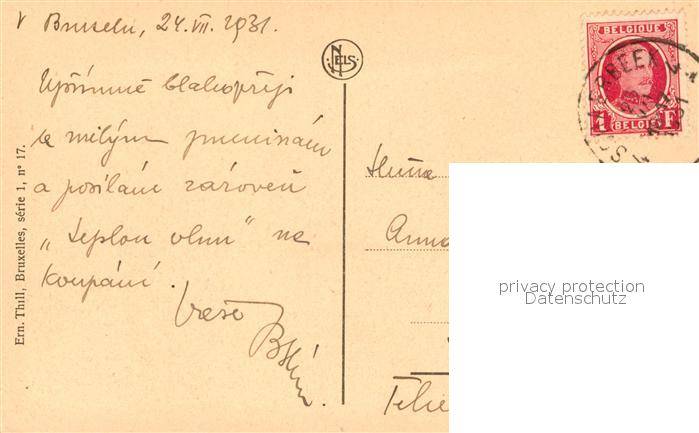 V Bruselu, 24. VII. 1931.
Upřímně blahopřeji
k milým jmeninám
a posílám zároveň
„teplou vlnu“ na
koupání.
Vaše
NELS
Ern. Thill, Bruxelles, série 1, n° 17.
BELGIQUE
1 F
BELGIË
Slečna
Anna
privacy protection
Datenschutz